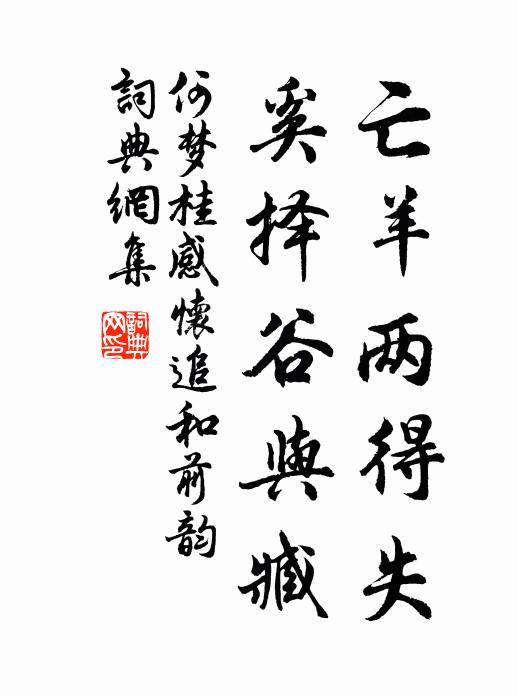 亡羊两得失
奚择谷與臧
何梦桂感懷追和前韵
詞典網集
詞典网印